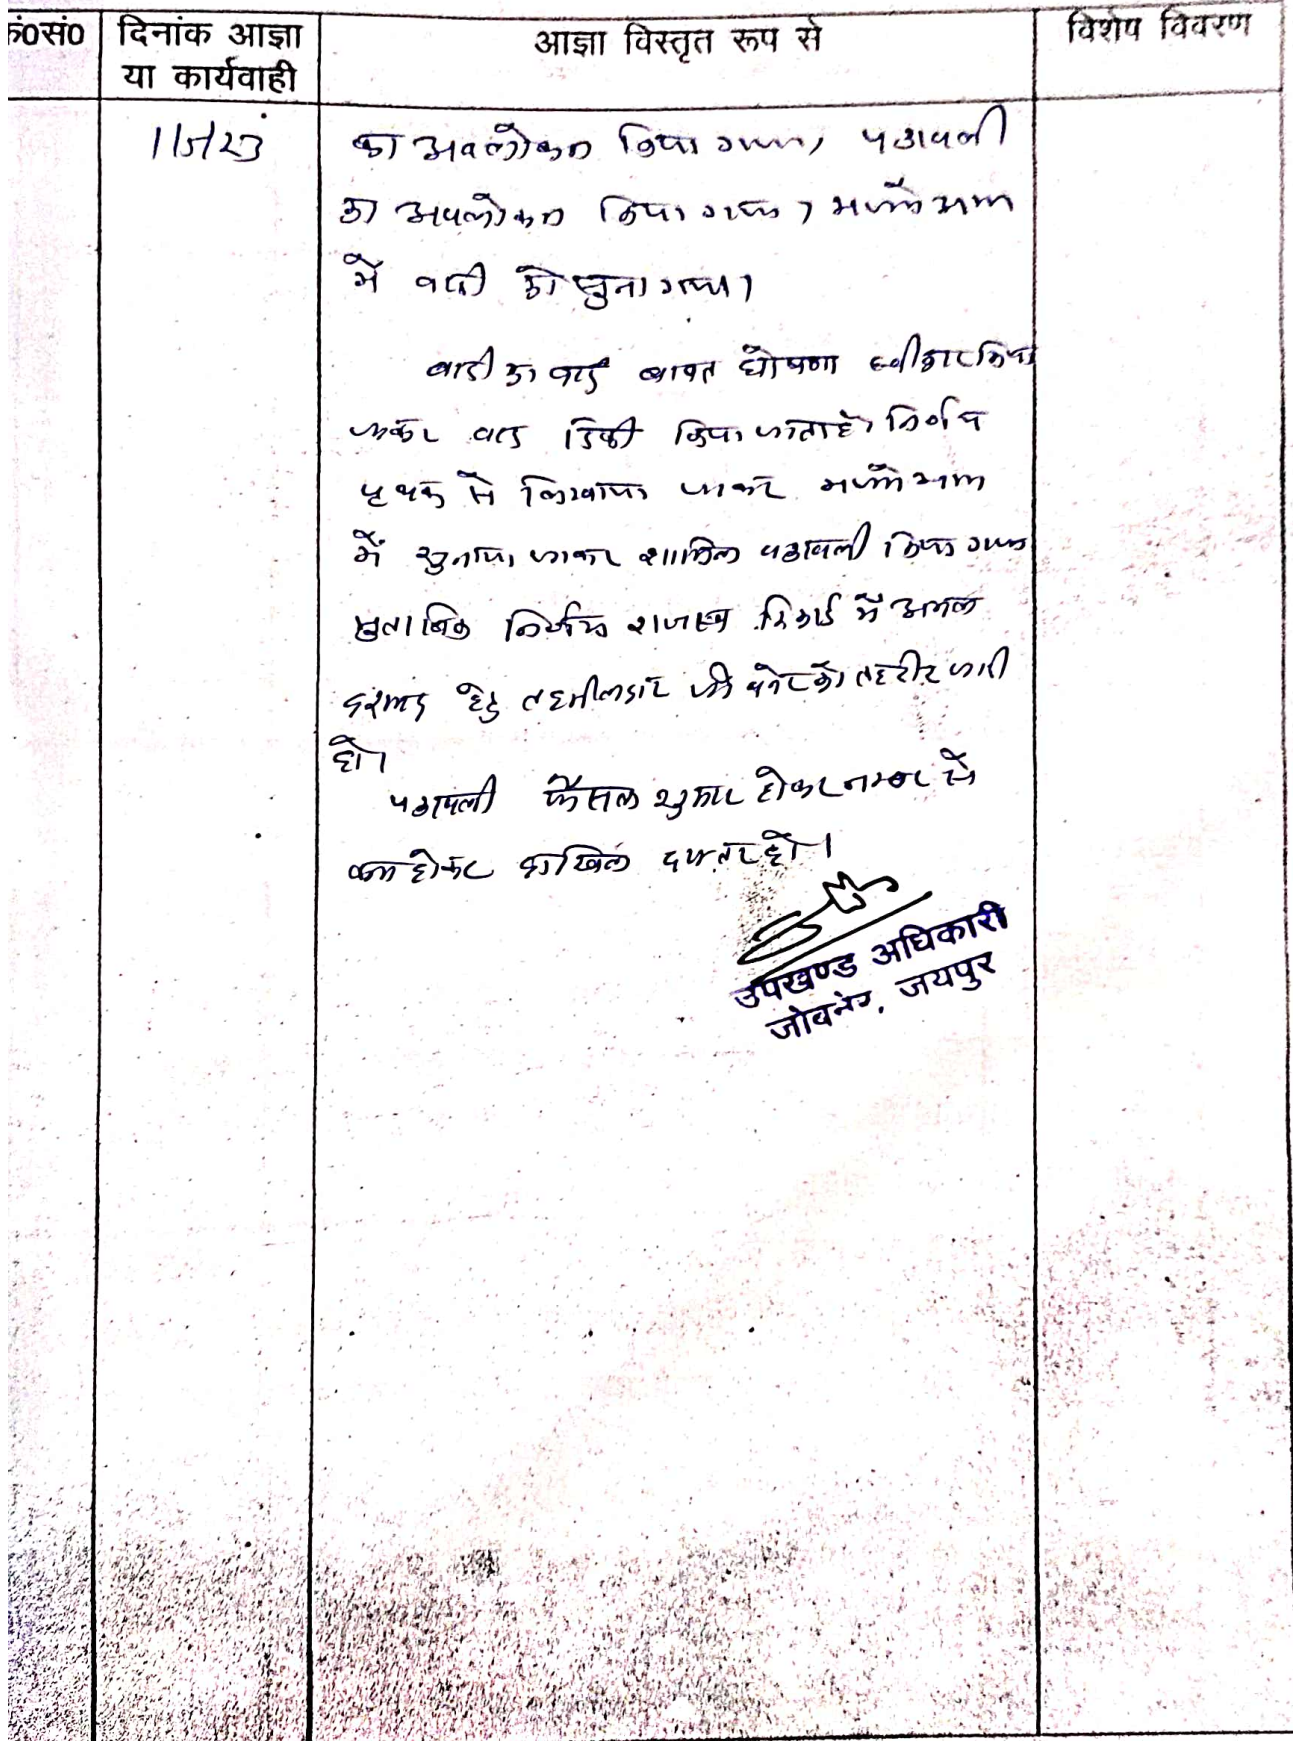 कं0सं0 दिनांक आज्ञा या कार्यवाही आज्ञा विस्तृत रूप से विशेष विवरण
का अवलोकन किया गया, पत्रावली
का अवलोकन किया गया।
में वादी को सुना गया।
वादी का वाद बाबत घोषणा स्वीकार किया
जाकर वाद डिक्री किया जाता है। निर्णय
पृथक से लिखाया जाकर
में सुनाया जाकर शामिल पत्रावली किया गया
मुताबिक निर्णय राजस्व रिकार्ड में अमल
दरामद हेतु तहसीलदार जोबनेर को तहरीर जारी
हो।
पत्रावली फैसल शुमार होकर नम्बर से
कम होकर दाखिल दफ्तर हो।
उपखण्ड अधिकारी
जोबनेर, जयपुर